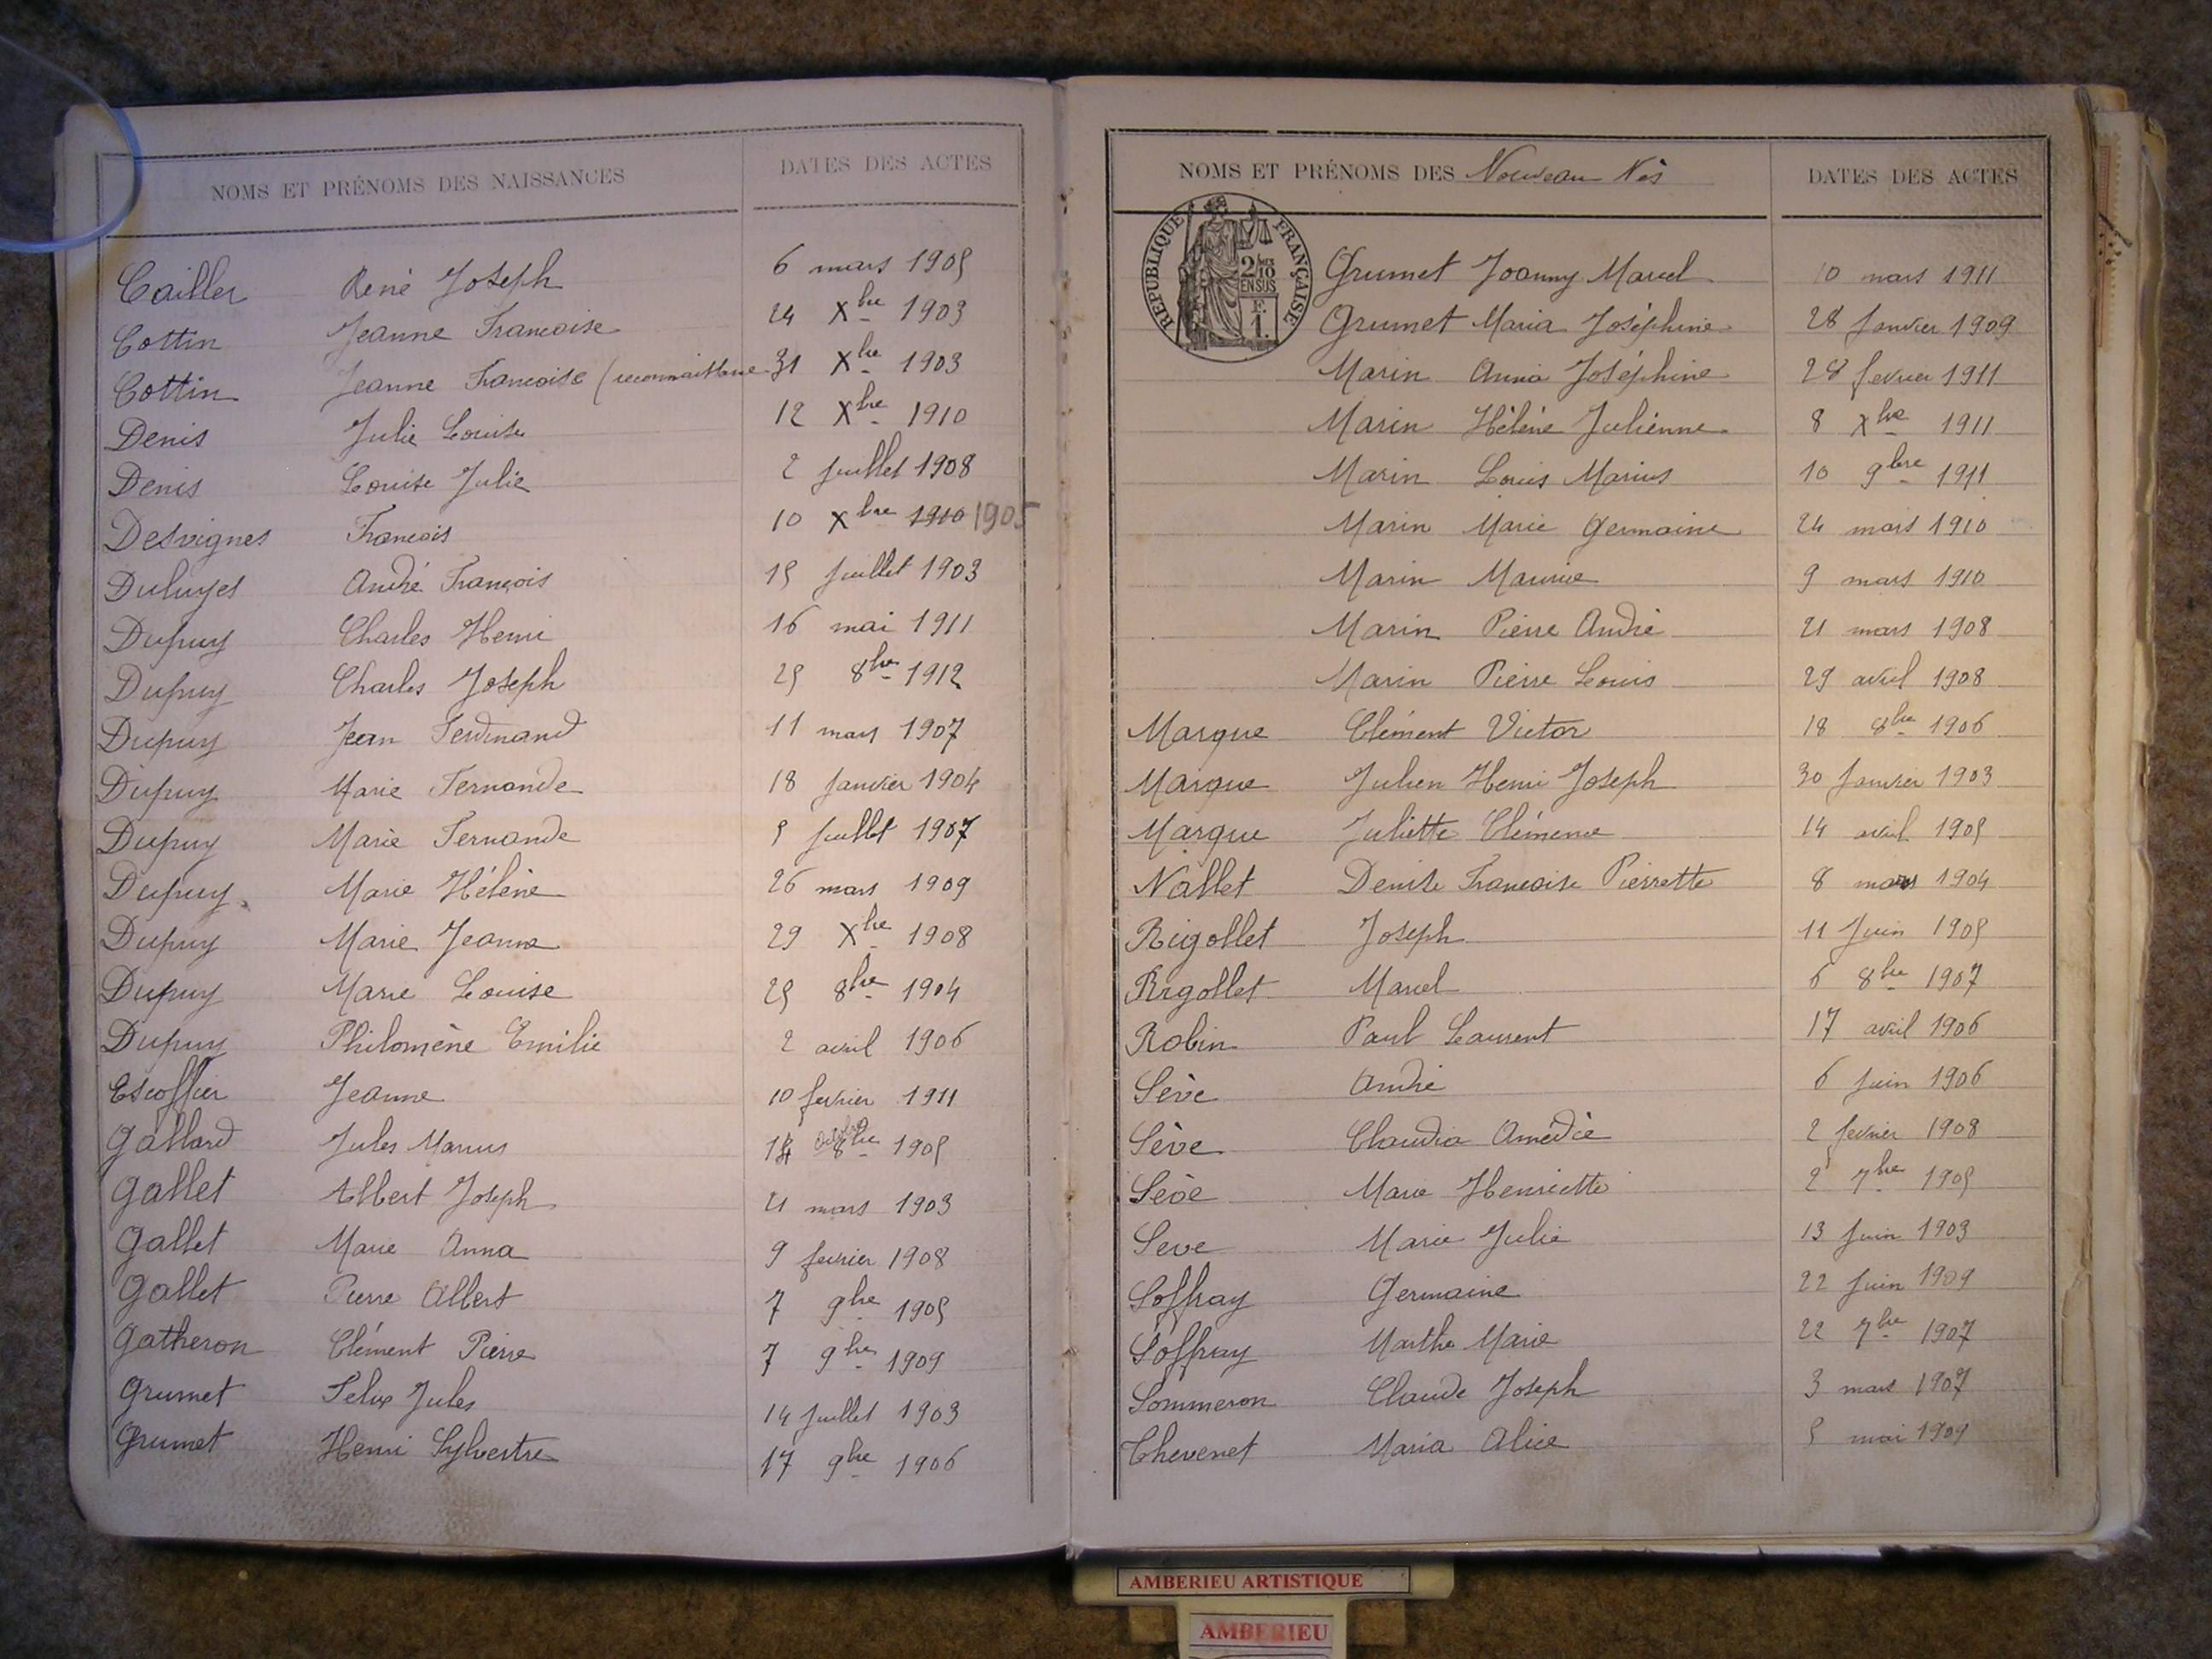 NOMS ET PRÉNOMS DES NAISSANCES DATES DES ACTES
Cailler René Joseph 6 mars 1905
Cottin Jeanne Francoise 24 Xbre 1903
Cottin Jeanne Francoise (reconnaissance 31 Xbre 1903
Denis Julie Louise 12 Xbre 1910
Denis Louise Julie 2 Juillet 1908
Desvignes Francois 10 Xbre 1910 1905
André François 15 Juillet 1903
Dupuy Charles Henri 16 mai 1911
Dupuy Charles Joseph 25 8bre 1912
Dupuy Jean Ferdinand 11 mars 1907
Dupuy Marie Fernande 18 Janvier 1904
Dupuy Marie Fernande 5 Juillet 1907
Dupuy Marie Hélène 26 mars 1909
Dupuy Marie Jeanne 29 Xbre 1908
Dupuy Marie Louise 25 8bre 1904
Dupuy Philomène Emilie 2 avril 1906
Escoffier Jeanne 10 fevrier 1911
Gallard Jules Marius 8bre 1905
Gallet Albert Joseph 21 mars 1903
Gallet Marie Anna 9 fevrier 1908
Gallet Pierre Albert 7 9bre 1905
Gatheron Clément Pierre 7 9bre 1909
Grumet Felix Jules 14 Juillet 1903
Grumet Henri Sylvestre 17 9bre 1906
NOMS ET PRÉNOMS DES Nouveau Nés DATES DES ACTES
REPUBLIQUE FRANÇAISE
2/10 EN SUS
F. 1.
Grumet Joanny Marcel 10 mars 1911
Grumet Maria Joséphine 28 Janvier 1909
Marin Anna Joséphine 28 fevrier 1911
Marin Hélène Julienne 8 Xbre 1911
Marin Louis Marius 10 9bre 1911
Marin Marie Germaine 24 mars 1910
Marin Maurice 9 mars 1910
Marin Pierre André 21 mars 1908
Marin Pierre Louis 29 avril 1908
Marque Clément Victor 18 8bre 1906
Marque Julien Henri Joseph 30 Janvier 1903
Marque Juliette Clémence 14 avril 1905
Nallet Denise Francoise Pierrette 8 mars 1904
Rigollet Joseph 11 Juin 1905
Rigollet Marcel 6 8bre 1907
Robin Paul Laurent 17 avril 1906
Sève André 6 Juin 1906
Sève Claudia Amédée 2 fevrier 1908
Sève Marie Henriette 2 7bre 1905
Seve Marie Julie 13 Juin 1903
Soffray Germaine 22 Juin 1909
Soffray Marthe Marie 22 7bre 1907
Sommeron Claude Joseph 3 mars 1907
Thevenet Maria Alice 5 mai 1909
AMBERIEU ARTISTIQUE
AMBERIEU